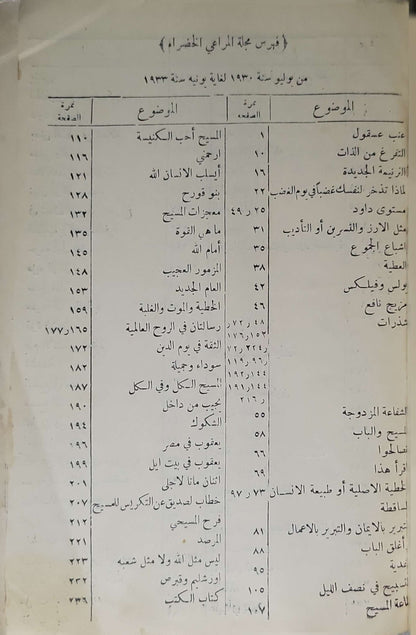 ﴿ فهرس مجلة المراعي الخضراء ﴾
من يوليو سنة ١٩٣٠ لغاية يونيه سنة ١٩٣٣
الموضوع نمرة الصفحة
عنب عسقول ١
التفرغ من الذات ١٠
الترنيمة الجديدة ١٦
لماذا تذخر لنفسك غضباً في يوم الغضب ٢٢
مستوى داود ٢٥ ر ٤٩
مثل الارز والقسرين أو التأديب ٣١
اشباع الجموع ٣٥
العطية ٣٨
بولس وفيلكس ٤٢
مزيج نافع ٤٦
شذرات ٤٨ ر ٧٢ ر
١٥٢ ر ١٧٦
ر ٢٢٤ ر ٧٢
ر ٩٦ ر ١١٩
١٤٤ ر ١٩٢
١٤٤ ر ١٩١
ر ٢١٦
لشفاعة المزدوجة ٥٥
لمسيح والباب ٥٨
تصالحوا ٦٦
اقرأ هذا ٦٩
لخطية الاصلية أو طبيعة الانسان ٧٣ ر ٩٧
لساقطة
تبرير بالايمان والتبرير بالاعمال ٨١
أغلق الباب ٨٨
فدية ٩٥
لتسبيح في نصف الليل ١٠٥
اعة المسيح ١٠٧
الموضوع نمرة الصفحة
المسيح أحب الكنيسة ١١٠
ارحمني ١١٦
أيسلب الانسان الله ١٢١
بنو قورح ١٢٨
معجزات المسيح ١٣٢
ما هي القوة ١٣٥
أمام الله ١٤٥
المزمور العجيب ١٤٨
العام الجديد ١٥٣
الخطية والموت والغلبة ١٥٩
رسالتان في الروح العالمية ١٦٥ ر ١٧٧
الثقة في يوم الدين ١٧٢
سوداء وجميلة ١٨٢
المسيح الكل وفي الكل ١٨٧
نحيب من داخل ١٩٠
الشكوك ١٩٤
يعقوب في مصر ١٩٦
يعقوب في بيت ايل ١٩٩
اثنان ماتا لاجلي ٢٠١
خطاب لصديق عن التكريس للمسيح ٢٠٧
فرح المسيحي ٢١٢
المرصد ٢٢١
ليس مثل الله ولا مثل شعبه ٢٢٣
اورشليم وقبرص ٢٣٢
كتاب الكتب ٢٣٦